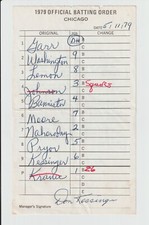 1979 OFFICIAL BATTING ORDER
CHICAGO
5/11/79
ORIGINAL CHANGE
Garr DH
Washington 9
Lemon 8
Johnson 3 Squires
Bannister 4
Moore 7
Nahorodny 2
Pryor 5
Kessinger 6
Kravec 1
Don Kessinger
Manager's Signature